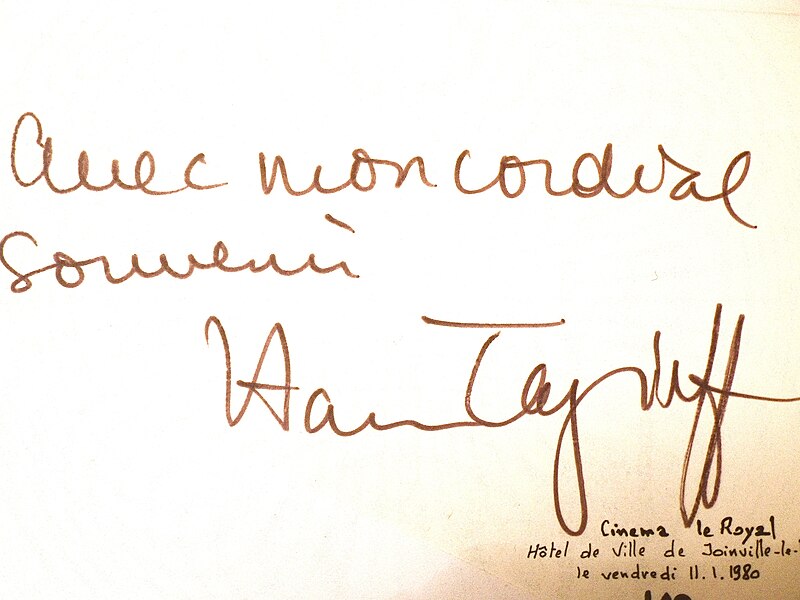 avec mon cordial
souvenir
Haroun Tazieff
Cinema le Royal
Hôtel de Ville de Joinville-le-
le vendredi 11.1.1980